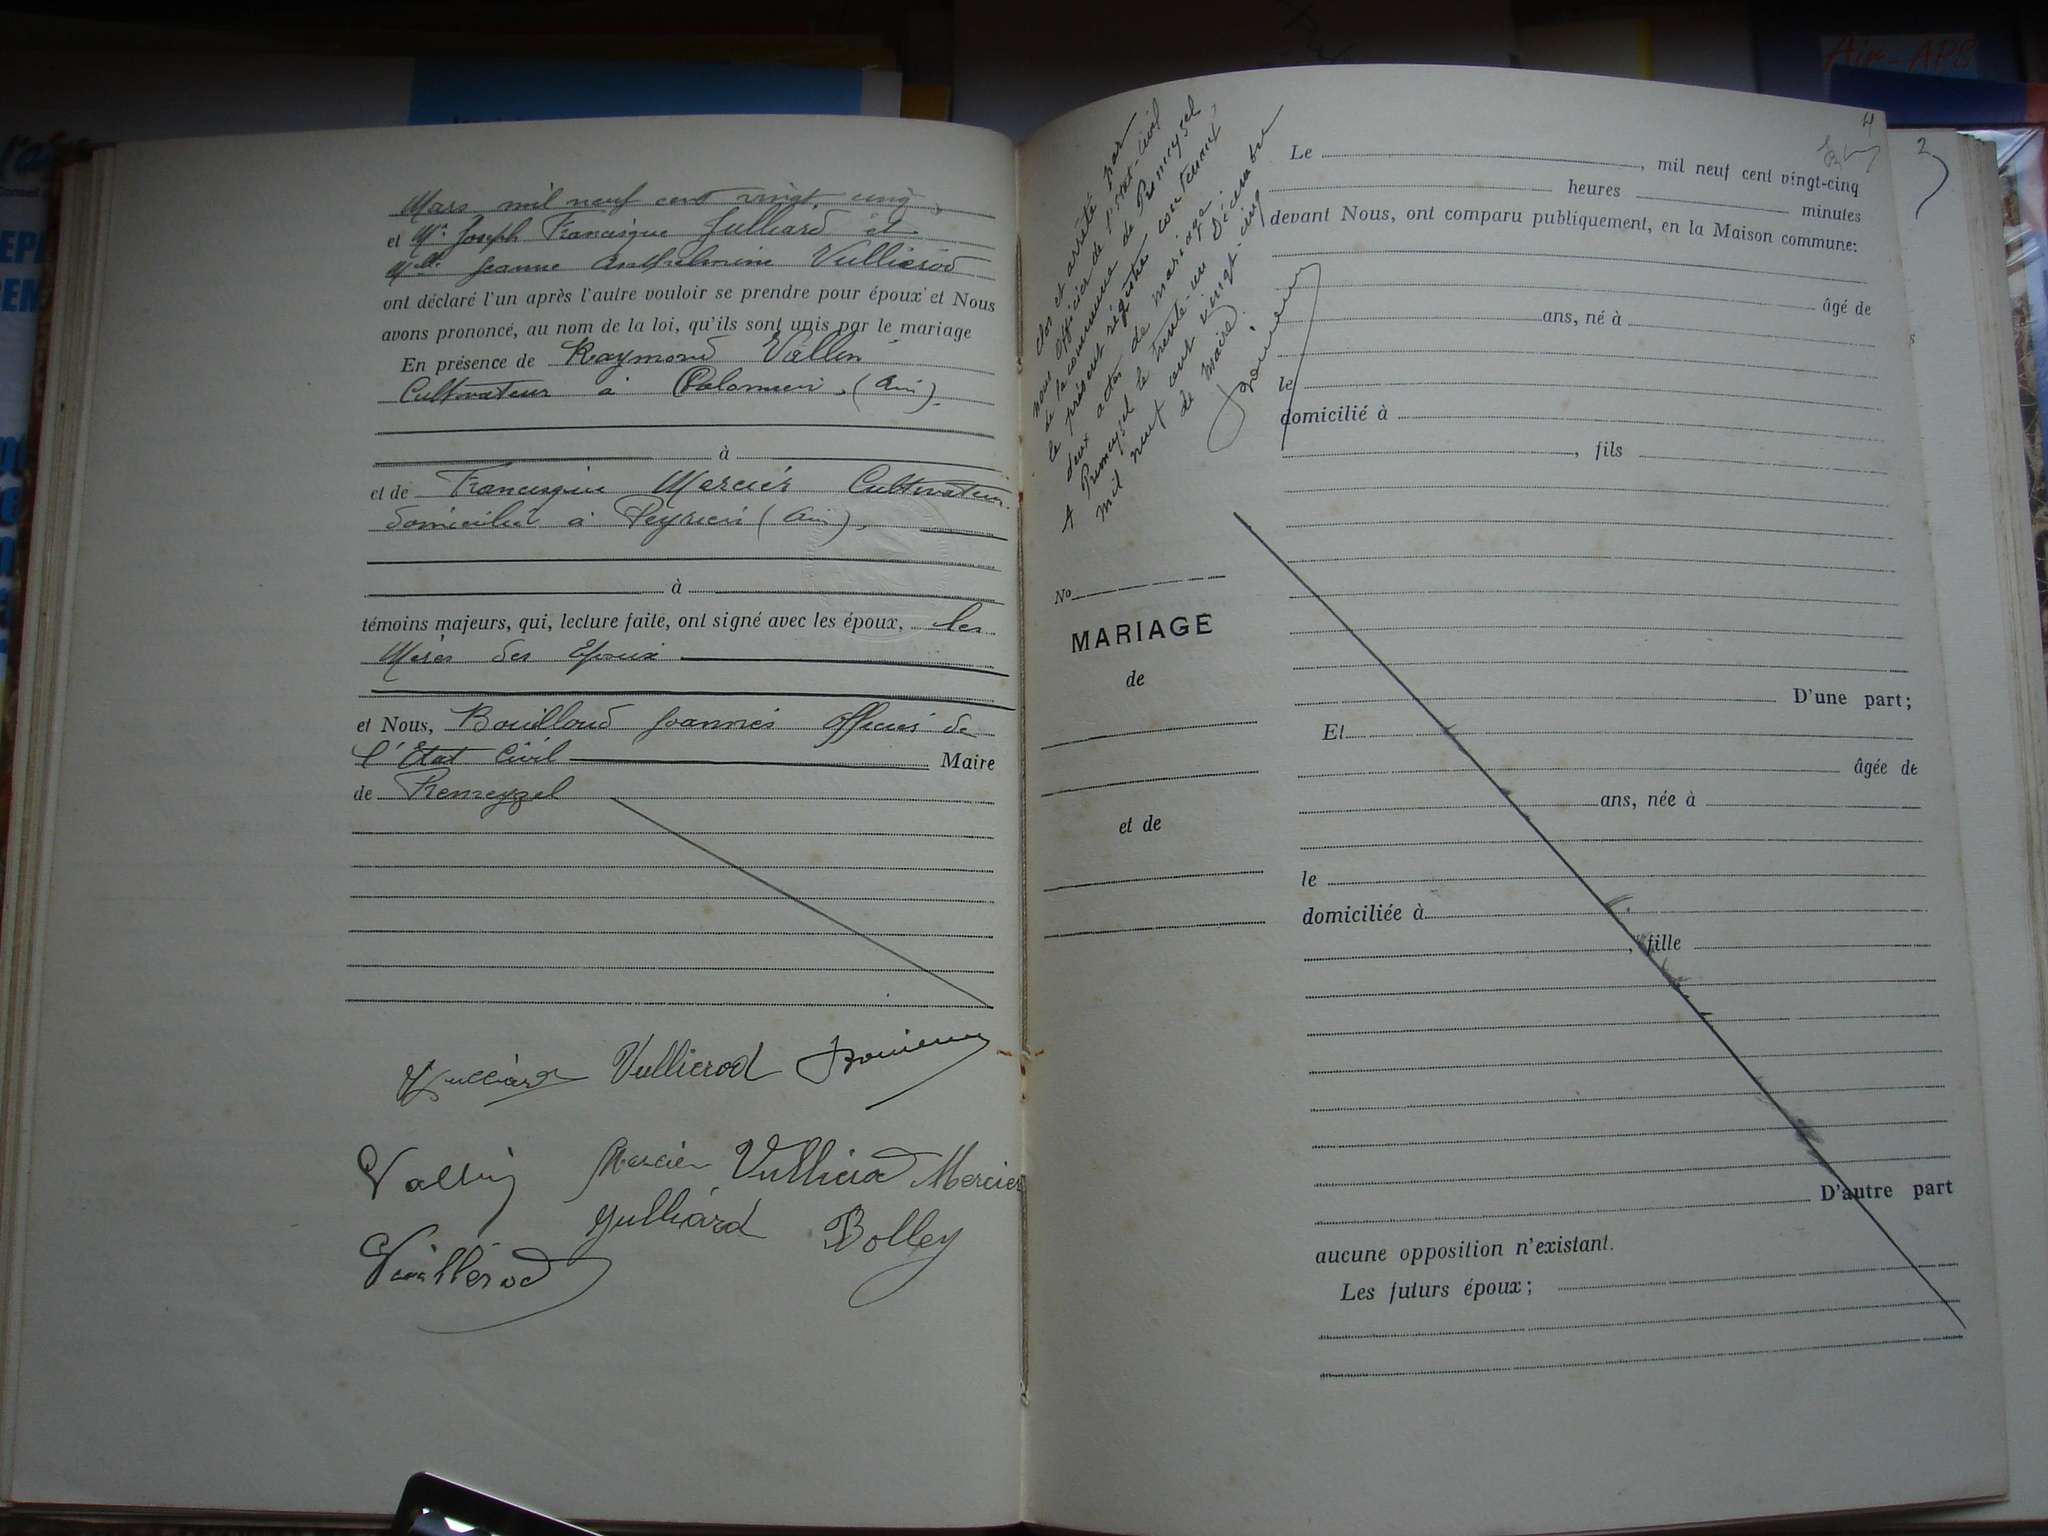 Mars mil neuf cent vingt, cinq,
et Mr. Joseph Francisque Julliard et
Melle Jeanne Anthelmine Vullierod
ont déclaré l'un après l'autre vouloir se prendre pour époux et Nous
avons prononcé, au nom de la loi, qu'ils sont unis par le mariage
En présence de Raymond Vallin
Cultivateur à (Ain).
à
et de Francisque Mercier Cultivateur
domicilié à Peyrieu (Ain),
à
témoins majeurs, qui, lecture faite, ont signé avec les époux, les
Mères des Epoux
et Nous, Bouilloud Joannès Officier de
l'Etat Civil Maire
de Premeyzel
Julliard Vullierod
Vallin Mercier Vullierod Mercier
Julliard Bolley
Vullierod
clos et arrêté par
nous officier de l'état-civil
de la commune de Premeyzel
le présent régistre contenant
deux actes de mariage
A Premeyzel le trente-un Décembre
mil neuf cent vingt-cinq
Le Maire.
No
MARIAGE
de
et de
4
2
Le , mil neuf cent vingt-cinq
heures minutes
devant Nous, ont comparu publiquement, en la Maison commune:
âgé de
ans, né à
le
domicilié à
, fils
D'une part;
Et
âgée de
ans, née à
le
domiciliée à
, fille
D'autre part
aucune opposition n'existant.
Les futurs époux;
Air-APS